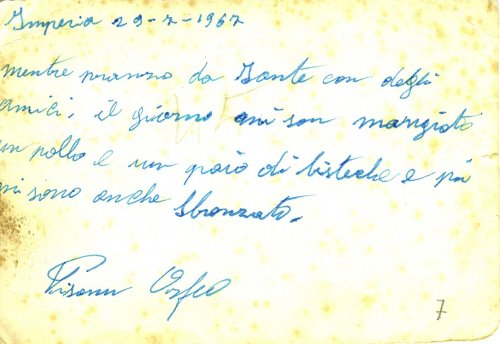 Imperia 29-7-1967
mentre pranzo da Sante con degli
amici, il giorno mi son mangiato
un pollo e un paio di bisteche e poi
mi sono anche sbronzato.
Orfeo
7